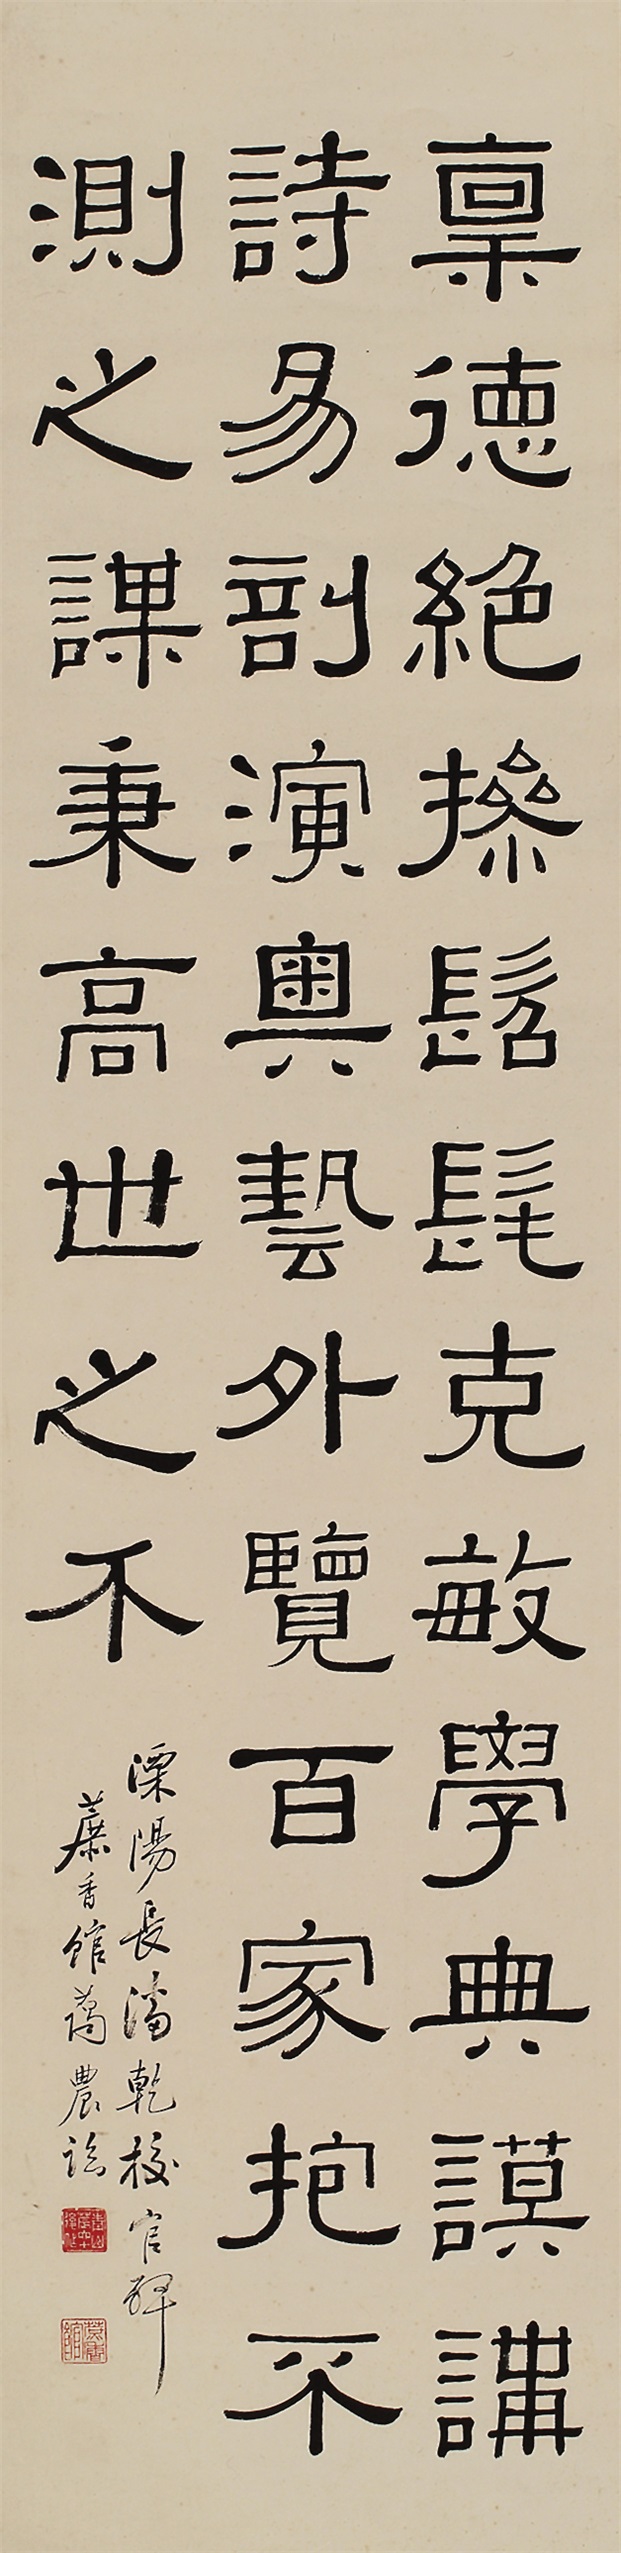 稟德絕操髫髦克敏學典謨講
詩易剖演奧藝外覽百家抱不
測之謀秉高世之不
溧陽長潘乾校官碑
藘香館蔼農臨